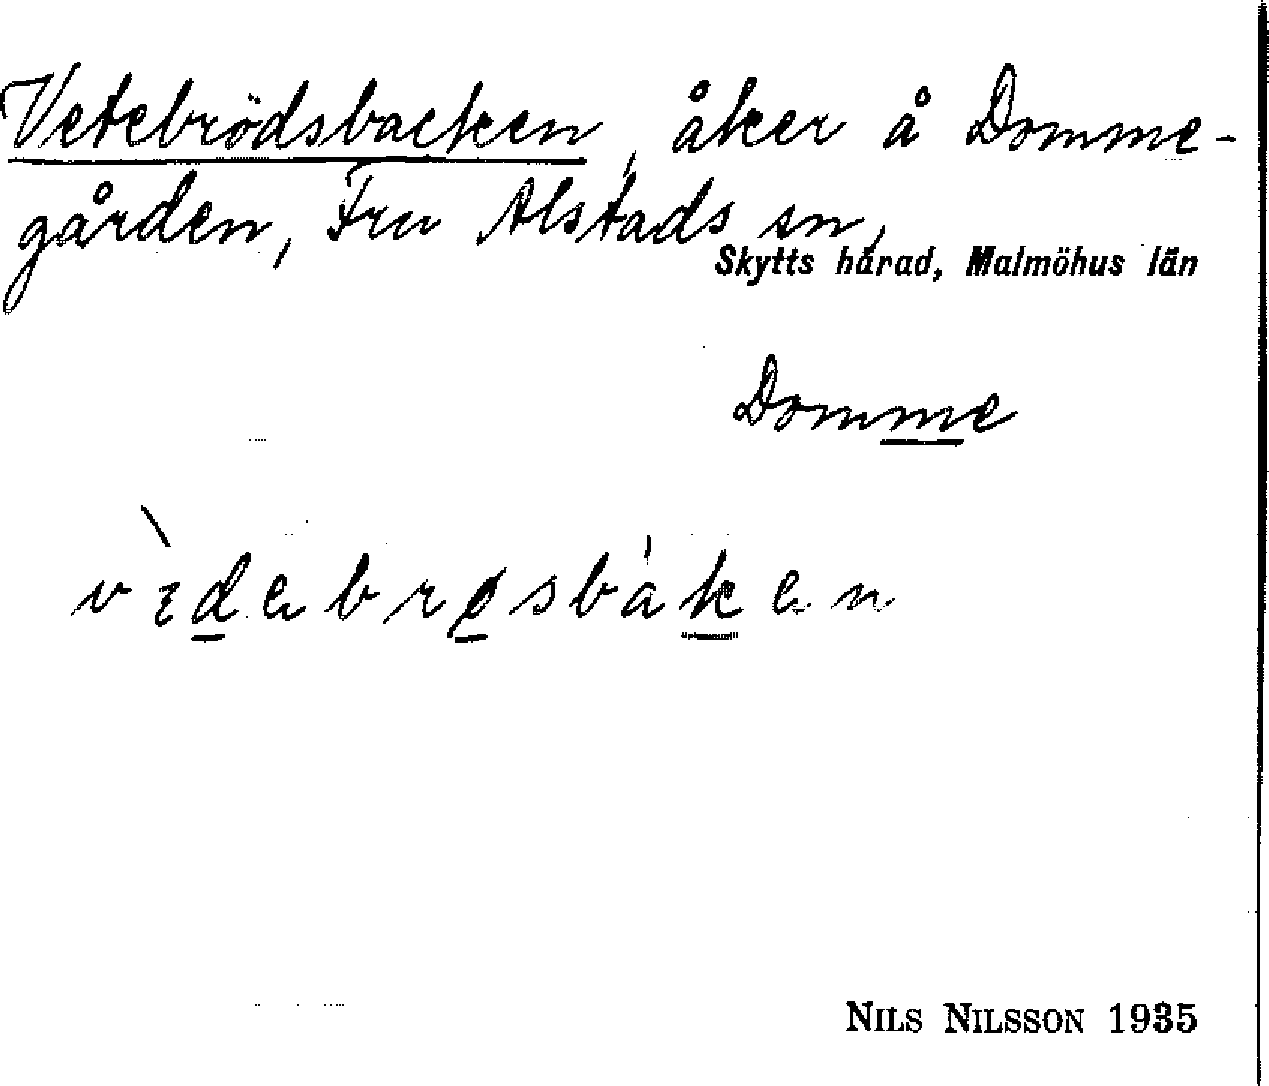 Vetebrödsbacken, åker å Domme-
gården, Fru Alstads sn,
Skytts härad, Malmöhus län
Domme
NILS NILSSON 1935